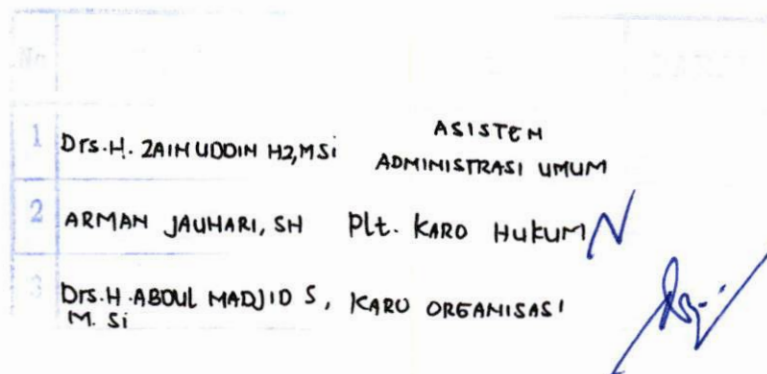 No
1 Drs. H. ZAINUDDIN HZ, MSi ASISTEN
ADMINISTRASI UMUM
2 ARMAN JAUHARI, SH Plt. KARO HUKUM
3 Drs. H. ABDUL MADJID S, KARO ORGANISASI
M. Si